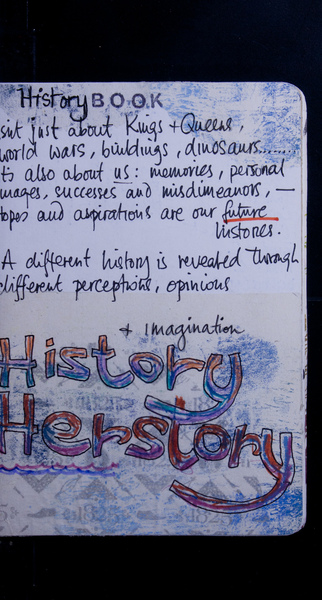 History BOOK
isn't just about Kings + Queens,
world wars, buildings, dinosaurs.......
it's also about us: memories, personal
images, successes and misdimeanors, —
hopes and aspirations are our future
histories.
A different history is revealed through
different perceptions, opinions
+ Imagination
History
Herstory